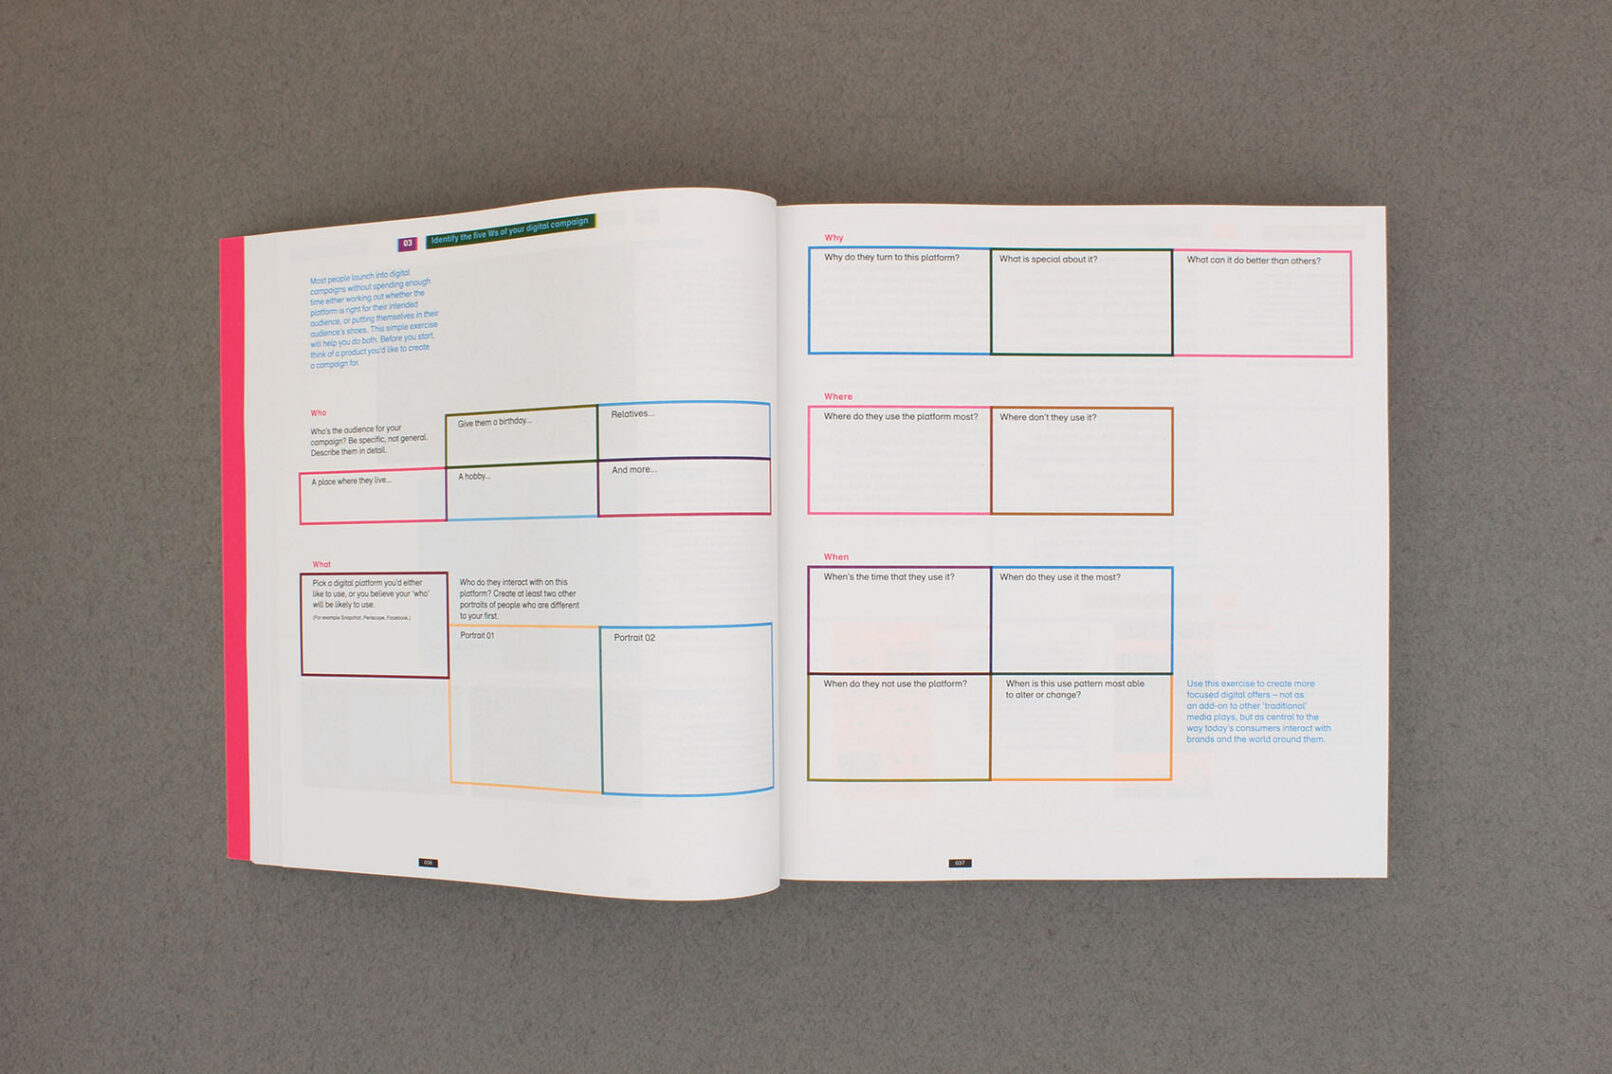 03 Identify the five Ws of your digital campaign
Most people launch into digital
campaigns without spending enough
time either working out whether the
platform is right for their intended
audience, or putting themselves in their
audience's shoes. This simple exercise
will help you do both. Before you start,
think of a product you'd like to create
a campaign for.
Who
Who's the audience for your
campaign? Be specific, not general.
Describe them in detail.
Give them a birthday...
Relatives...
A place where they live...
A hobby...
And more...
What
Pick a digital platform you'd either
like to use, or you believe your 'who'
will be likely to use.
(For example Snapchat, Periscope, Facebook.)
Who do they interact with on this
platform? Create at least two other
portraits of people who are different
to your first.
Portrait 01
Portrait 02
036
Why
Why do they turn to this platform?
What is special about it?
What can it do better than others?
Where
Where do they use the platform most?
Where don't they use it?
When
When's the time that they use it?
When do they use it the most?
When do they not use the platform?
When is this use pattern most able
to alter or change?
Use this exercise to create more
focused digital offers – not as
an add-on to other 'traditional'
media plays, but as central to the
way today's consumers interact with
brands and the world around them.
037